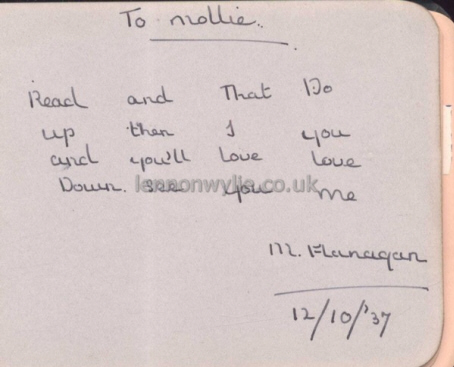 To Mollie.
Read and That Do
up then I you
and you'll Love Love
Down. see you me
lennonwylie.co.uk
M. Flanagan
12/10/'37